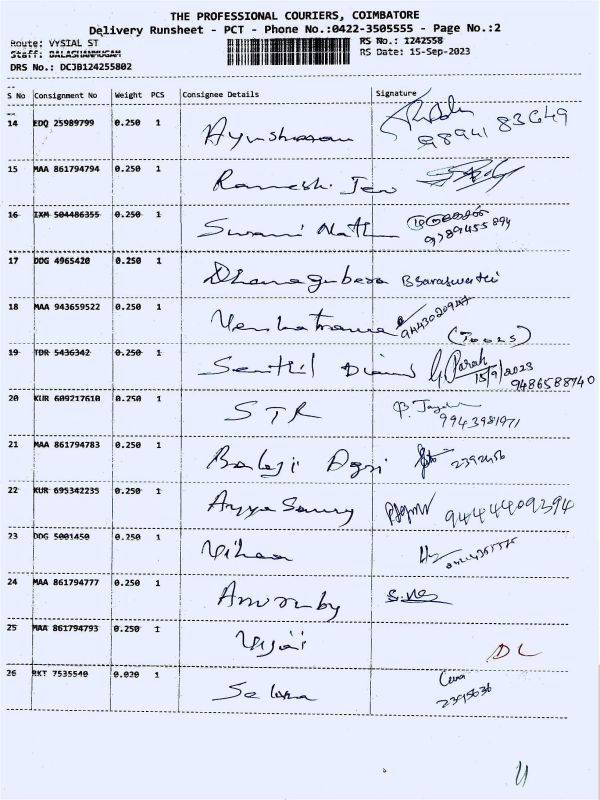 THE PROFESSIONAL COURIERS, COIMBATORE
Delivery Runsheet - PCT - Phone No.:0422-3505555 - Page No.:2
Route: VYSIAL ST RS No.: 1242558
Staff: BALASHANMUGAM RS Date: 15-Sep-2023
DRS No.: DCJB124255802
S No Consignment No Weight PCS Consignee Details Signature
14 EDQ 25989799 0.250 1
98941 83649
15 MAA 861794794 0.250 1 Ramesh Jew
16 IXM 504486355 0.250 1 Swami Nath
9789455894
17 DDG 4965420 0.250 1 Dhanagubera B Saraswathi
18 MAA 943659522 0.250 1 Venkatrama 9443020947
(TOOLS)
19 TDR 5436342 0.250 1 Senthil Diam G. Parak
15/9/2023
9486588740
20 KUR 609217610 0.250 1 STR
9943981971
21 MAA 861794783 0.250 1 Balaji 2392456
22 KUR 695342235 0.250 1 Ayya Samy 9444409394
23 DDG 5001450 0.250 1 Vihaa
24 MAA 861794777 0.250 1
25 MAA 861794793 0.250 1 Vijai DL
26 RKT 7535540 0.020 1 Selva
2395636